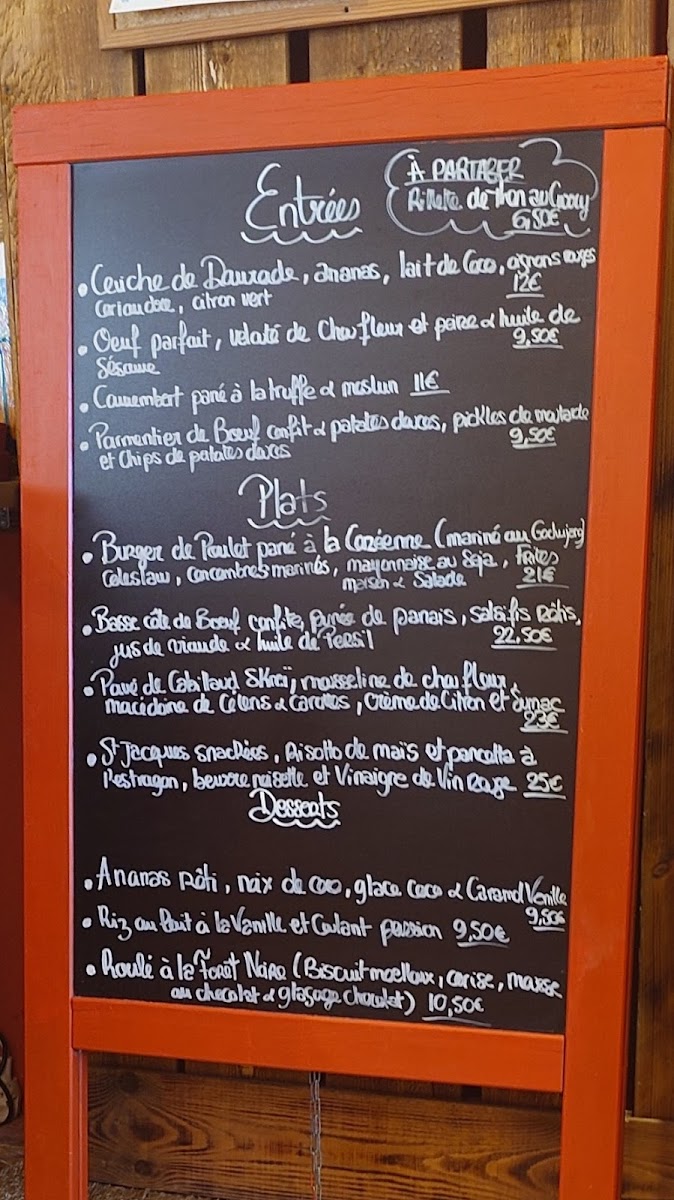 Entrées
À PARTAGER
Rillette de thon au Curry
6,50€
• Ceviche de Daurade, ananas, lait de Coco, oignons rouges
Coriandre, citron vert
12€
• Oeuf parfait, velouté de Chou fleur et poire & huile de
Sésame
9,50€
• Camembert pané à la truffe & mesclun 11€
• Parmentier de Boeuf confit & patates douces, pickles de moutarde
et Chips de patates douces
9,50€
Plats
• Burger de Poulet pané à la Coréenne (mariné au Gochujang)
Coleslaw, Concombres marinés, mayonnaise au Soja, Frites
maison & Salade
21€
• Basse côte de Boeuf confite, purée de panais, salsifis rôtis,
jus de viande & huile de Persil
22,50€
• Pavé de Cabillaud Skreï, mousseline de chou fleur,
macédoine de Céleris & Carottes, Crème de Citron et Sumac
23€
• St Jacques snackées, Risotto de maïs et pancetta à
l'estragon, beurre noisette et Vinaigre de Vin Rouge 25€
Desserts
• Ananas rôti, noix de coco, glace Coco & Caramel Vanille
9,50€
• Riz au lait à la Vanille et Coulant passion 9,50€
• Roulé à la Forêt Noire (Biscuit moelleux, cerise, mousse
au chocolat & glaçage chocolat) 10,50€